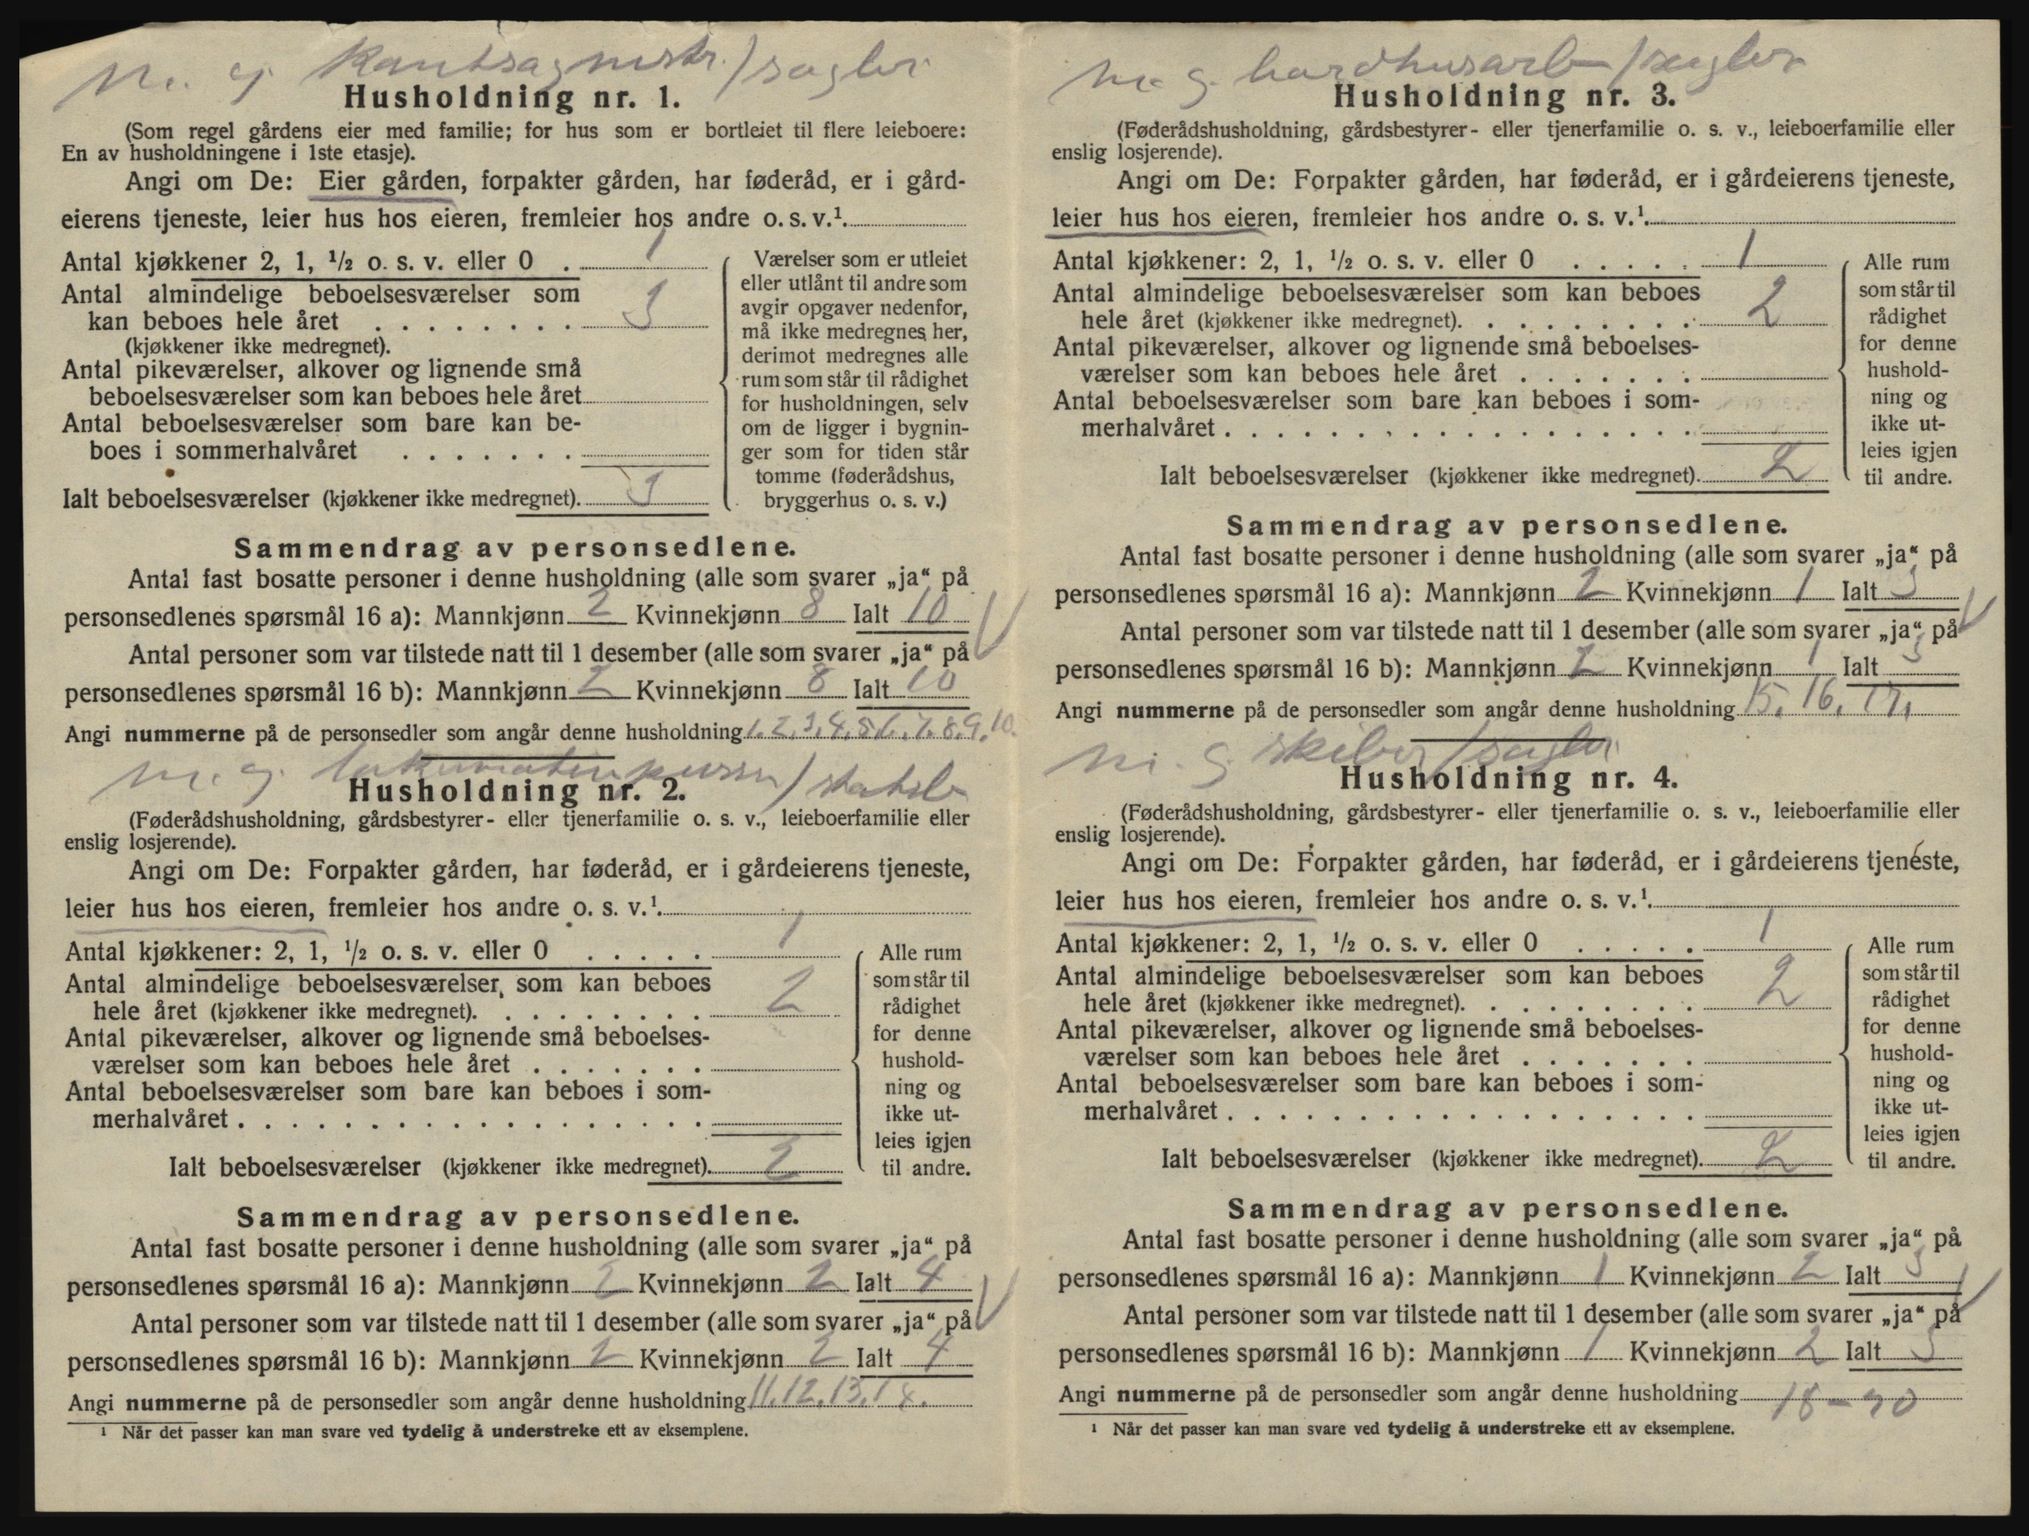 m. g. Kantsagmstr./sagbr.
Husholdning nr. 1.
(Som regel gårdens eier med familie; for hus som er bortleiet til flere leieboere:
En av husholdningene i 1ste etasje).
Angi om De: Eier gården, forpakter gården, har føderåd, er i gård-
eierens tjeneste, leier hus hos eieren, fremleier hos andre o. s. v.¹.
Antal kjøkkener 2, 1, ½ o. s. v. eller 0 . 1
Antal almindelige beboelsesværelser som
kan beboes hele året . . . . . . . . 3
(kjøkkener ikke medregnet).
Antal pikeværelser, alkover og lignende små
beboelsesværelser som kan beboes hele året
Antal beboelsesværelser som bare kan be-
boes i sommerhalvåret . . . . . . .
Ialt beboelsesværelser (kjøkkener ikke medregnet). 3
Værelser som er utleiet
eller utlånt til andre som
avgir opgaver nedenfor,
må ikke medregnes her,
derimot medregnes alle
rum som står til rådighet
for husholdningen, selv
om de ligger i bygnin-
ger som for tiden står
tomme (føderådshus,
bryggerhus o. s. v.)
Sammendrag av personsedlene.
Antal fast bosatte personer i denne husholdning (alle som svarer „ja“ på
personsedlenes spørsmål 16 a): Mannkjønn 2 Kvinnekjønn 8 Ialt 10
Antal personer som var tilstede natt til 1 desember (alle som svarer „ja“ på
personsedlenes spørsmål 16 b): Mannkjønn 2 Kvinnekjønn 8 Ialt 10
Angi nummerne på de personsedler som angår denne husholdning 1.2.3.4.5.6.7.8.9.10.
m. g. /statsb
Husholdning nr. 2.
(Føderådshusholdning, gårdsbestyrer- eller tjenerfamilie o. s. v., leieboerfamilie eller
enslig losjerende).
Angi om De: Forpakter gården, har føderåd, er i gårdeierens tjeneste,
leier hus hos eieren, fremleier hos andre o. s. v.¹.
Antal kjøkkener: 2, 1, ½ o. s. v. eller 0 . . . . . 1
Antal almindelige beboelsesværelser som kan beboes
hele året (kjøkkener ikke medregnet). . . . . . . . . 2
Antal pikeværelser, alkover og lignende små beboelses-
værelser som kan beboes hele året . . . . . . .
Antal beboelsesværelser som bare kan beboes i som-
merhalvåret . . . . . . . . . . . . . . . . . .
Ialt beboelsesværelser (kjøkkener ikke medregnet). 2
Alle rum
som står til
rådighet
for denne
hushold-
ning og
ikke ut-
leies igjen
til andre.
Sammendrag av personsedlene.
Antal fast bosatte personer i denne husholdning (alle som svarer „ja“ på
personsedlenes spørsmål 16 a): Mannkjønn 2 Kvinnekjønn 2 Ialt 4
Antal personer som var tilstede natt til 1 desember (alle som svarer „ja“ på
personsedlenes spørsmål 16 b): Mannkjønn 2 Kvinnekjønn 2 Ialt 4
Angi nummerne på de personsedler som angår denne husholdning 11.12.13.14.
¹ Når det passer kan man svare ved tydelig å understreke ett av eksemplene.
m. g. /sagbr
Husholdning nr. 3.
(Føderådshusholdning, gårdsbestyrer- eller tjenerfamilie o. s. v., leieboerfamilie eller
enslig losjerende).
Angi om De: Forpakter gården, har føderåd, er i gårdeierens tjeneste,
leier hus hos eieren, fremleier hos andre o. s. v.¹.
Antal kjøkkener: 2, 1, ½ o. s. v. eller 0 . . . . . 1
Antal almindelige beboelsesværelser som kan beboes
hele året (kjøkkener ikke medregnet). . . . . . . . . 2
Antal pikeværelser, alkover og lignende små beboelses-
værelser som kan beboes hele året . . . . . . .
Antal beboelsesværelser som bare kan beboes i som-
merhalvåret . . . . . . . . . . . . . . . . . .
Ialt beboelsesværelser (kjøkkener ikke medregnet). 2
Alle rum
som står til
rådighet
for denne
hushold-
ning og
ikke ut-
leies igjen
til andre.
Sammendrag av personsedlene.
Antal fast bosatte personer i denne husholdning (alle som svarer „ja“ på
personsedlenes spørsmål 16 a): Mannkjønn 2 Kvinnekjønn 1 Ialt 3
Antal personer som var tilstede natt til 1 desember (alle som svarer „ja“ på
personsedlenes spørsmål 16 b): Mannkjønn 2 Kvinnekjønn 1 Ialt 3
Angi nummerne på de personsedler som angår denne husholdning 15. 16. 17.
m. g. /sagbr
Husholdning nr. 4.
(Føderådshusholdning, gårdsbestyrer- eller tjenerfamilie o. s. v., leieboerfamilie eller
enslig losjerende).
Angi om De: Forpakter gården, har føderåd, er i gårdeierens tjeneste,
leier hus hos eieren, fremleier hos andre o. s. v.¹.
Antal kjøkkener: 2, 1, ½ o. s. v. eller 0 . . . . . 1
Antal almindelige beboelsesværelser som kan beboes
hele året (kjøkkener ikke medregnet). . . . . . . . . 2
Antal pikeværelser, alkover og lignende små beboelses-
værelser som kan beboes hele året . . . . . . .
Antal beboelsesværelser som bare kan beboes i som-
merhalvåret . . . . . . . . . . . . . . . . . .
Ialt beboelsesværelser (kjøkkener ikke medregnet). 2
Alle rum
som står til
rådighet
for denne
hushold-
ning og
ikke ut-
leies igjen
til andre.
Sammendrag av personsedlene.
Antal fast bosatte personer i denne husholdning (alle som svarer „ja“ på
personsedlenes spørsmål 16 a): Mannkjønn 1 Kvinnekjønn 2 Ialt 3
Antal personer som var tilstede natt til 1 desember (alle som svarer „ja“ på
personsedlenes spørsmål 16 b): Mannkjønn 1 Kvinnekjønn 2 Ialt 3
Angi nummerne på de personsedler som angår denne husholdning 18-20
¹ Når det passer kan man svare ved tydelig å understreke ett av eksemplene.